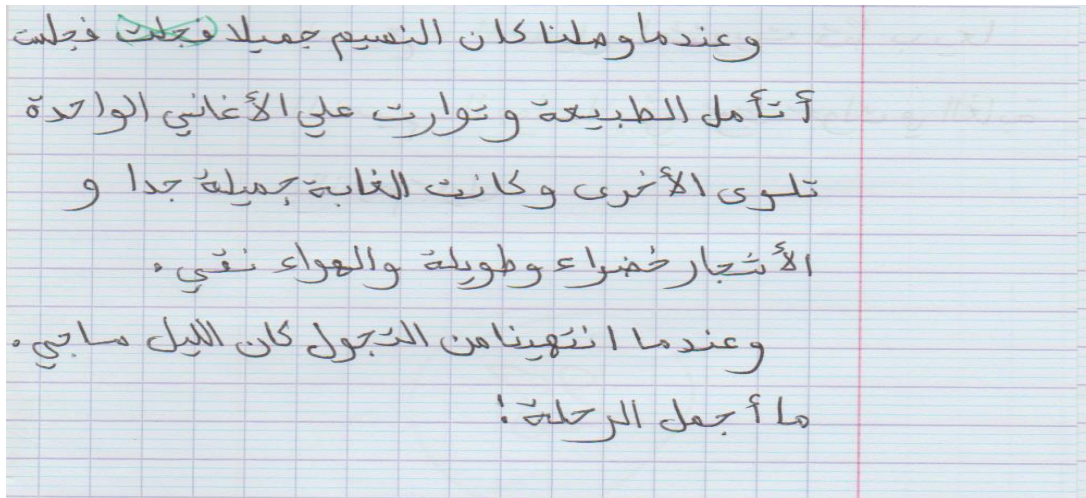 وعندما وصلنا كان النسيم جميلا فجلت فجلست
أتأمل الطبيعة وتوارت علي الأغاني الواحدة
تلوى الأخرى وكانت الغابة جميلة جدا و
الأشجار خضراء وطويلة والهواء نقي.
وعندما انتهينا من التجول كان الليل ساجي.
ما أجمل الرحلة!